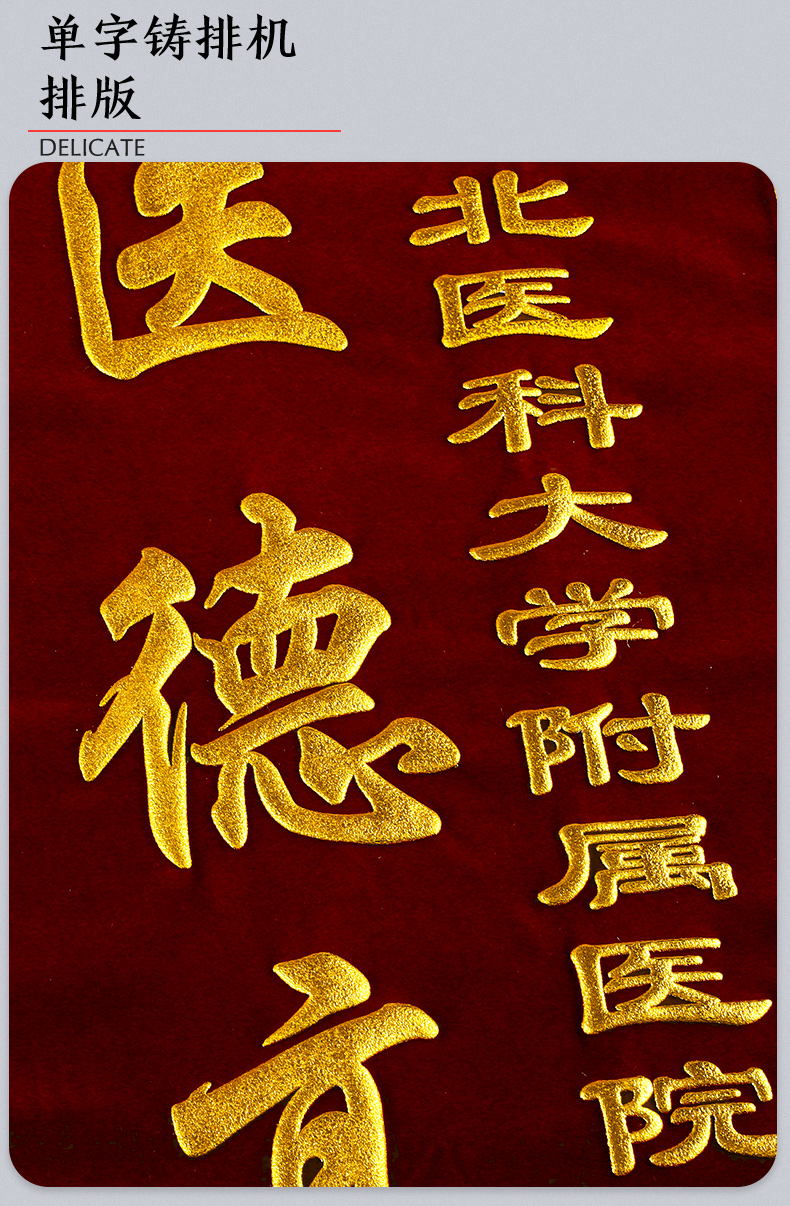 单字铸排机
排版
DELICATE
北医科大学附属医院
医德